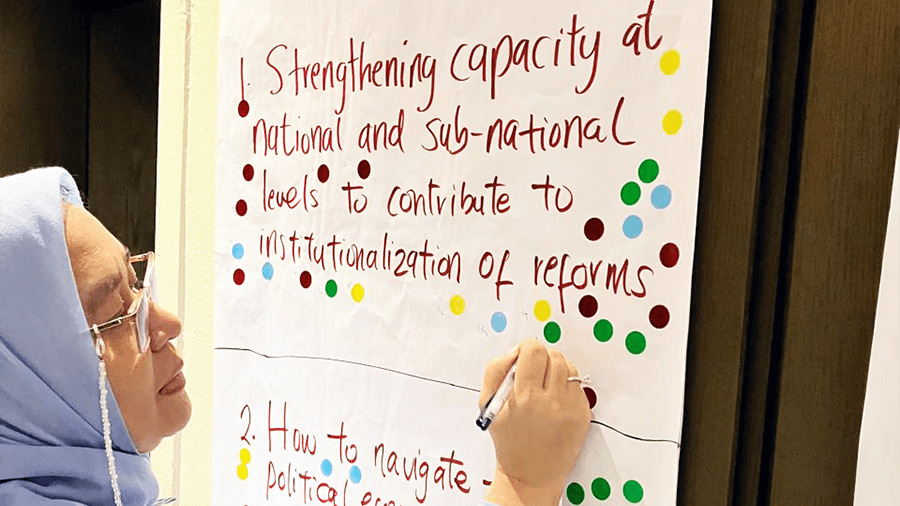 1. Strengthening capacity at
national and sub-national
levels to contribute to
institutionalization of reforms
2. How to navigate -
political